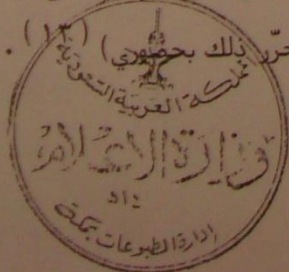 حرّر ذلك بحضوري) (١٣) .
المملكة العربية السعودية
وزارة الاعلام
إدارة المطبوعات بمكة